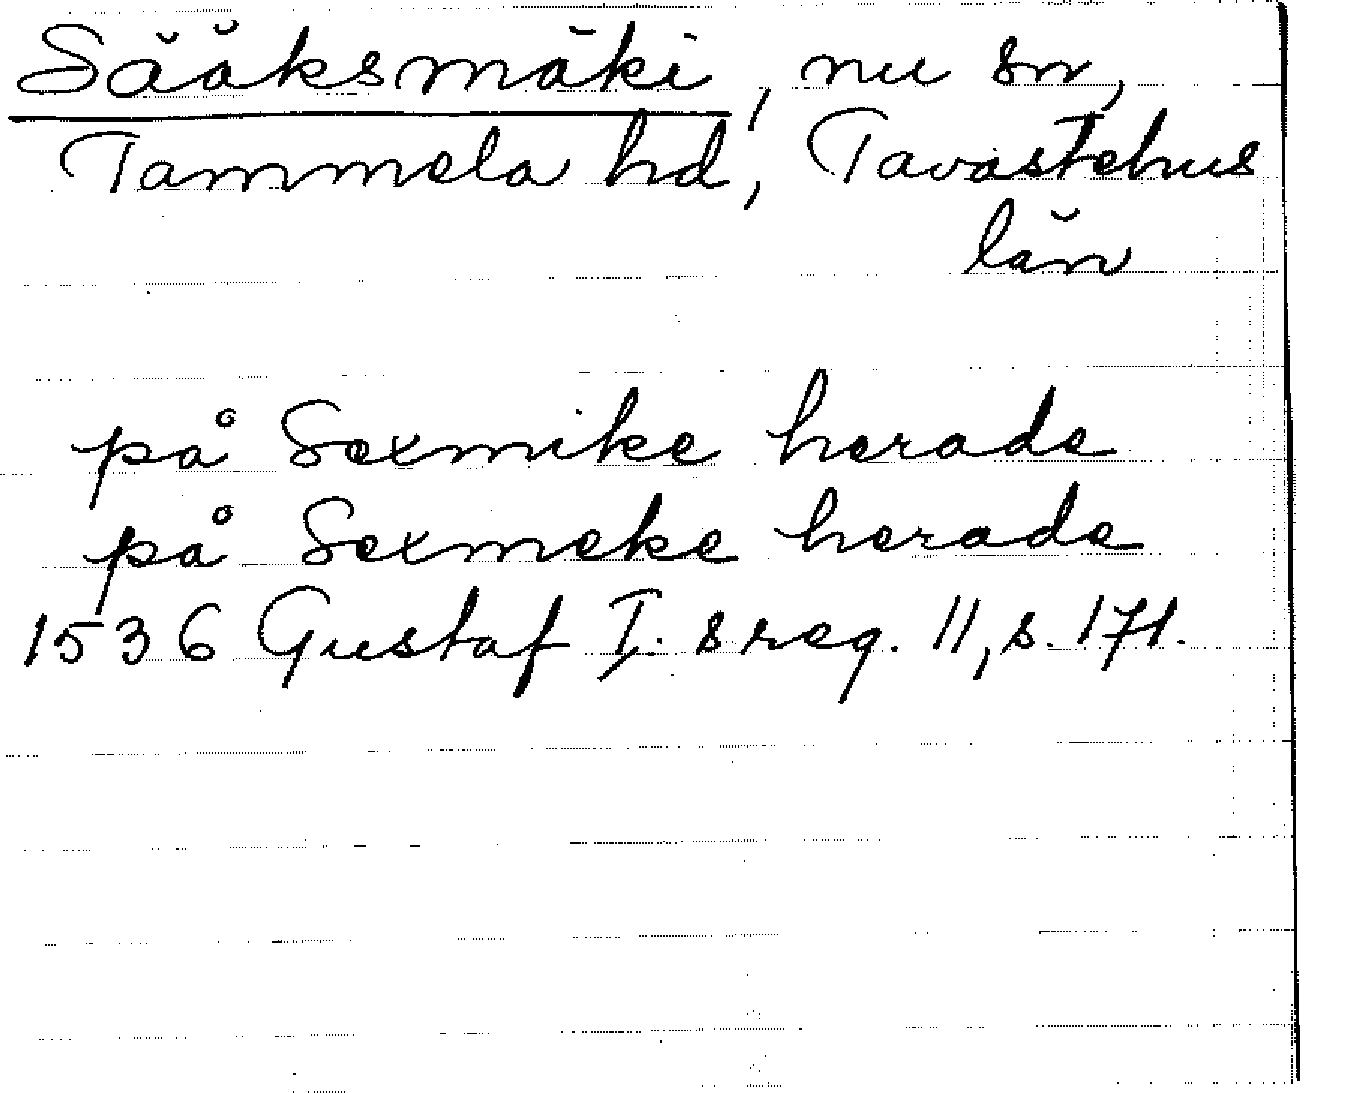 Sääksmäki, nu sn,
Tammela hd, Tavastehus
län
på Sexmike herade
på Sexmeke herade
1536 Gustaf I:s reg. 11, s. 171.